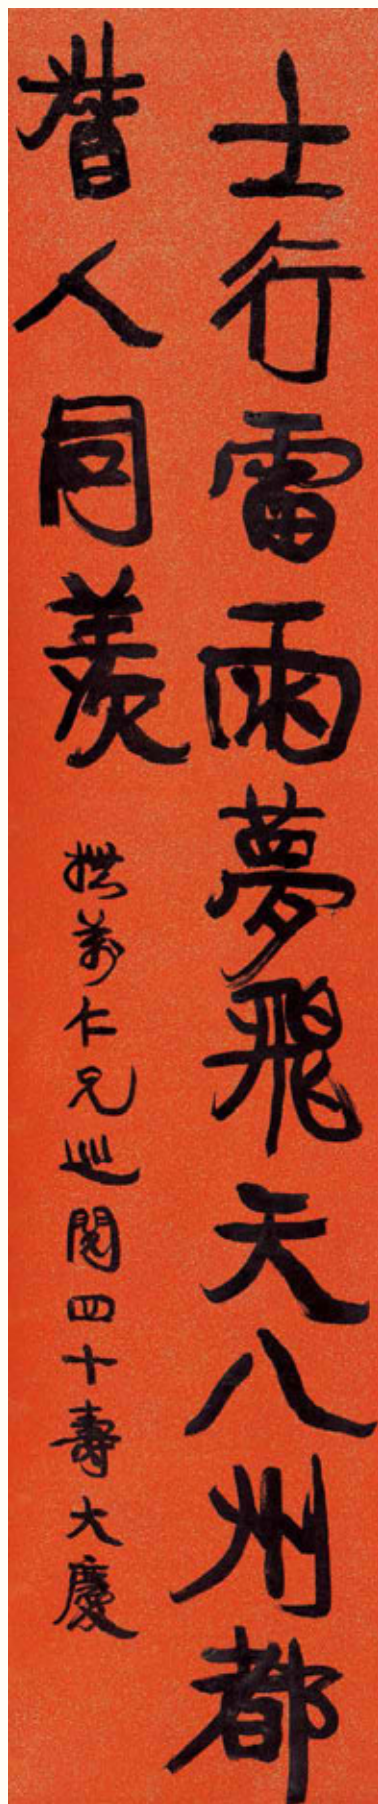 士行雷雨夢飛天八州都
督人同羨 撫萬仁兄巡閱四十壽大慶